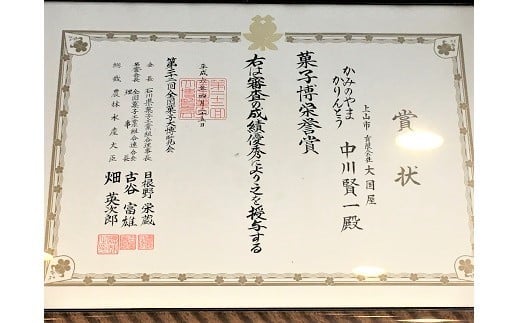 賞状
上山市 有限会社 大国屋
かみのやま
かりんとう
中川賢一殿
菓子博栄誉賞
右は審査の成績優秀により之を授与する
平成六年四月二十五日
第二十二回全国菓子大博覧会
会長 石川県菓子工業組合理事長 日根野栄蔵
全国菓子工業組合連合会
理事長 古谷富雄
総裁 農林水産大臣 畑英次郎